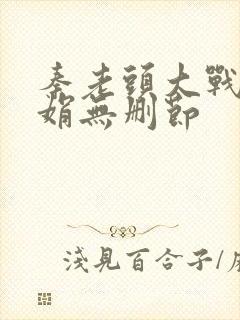 秦老頭大戰
娟無刪節
淺見百合子/